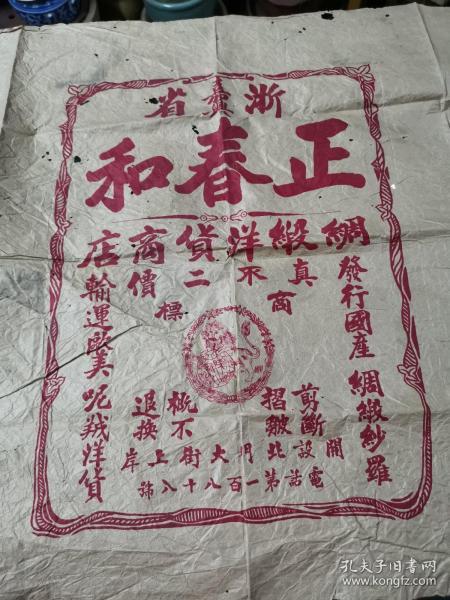 浙省
正春和
綢緞洋貨商店
真不二價
商標
發行國產 綢緞紗羅
輸運歐美 呢羢洋貨
剪斷招皺
概不退換
開設北門大街上岸
電話第一百八十八號
孔夫子旧书网
www.kongfz.com